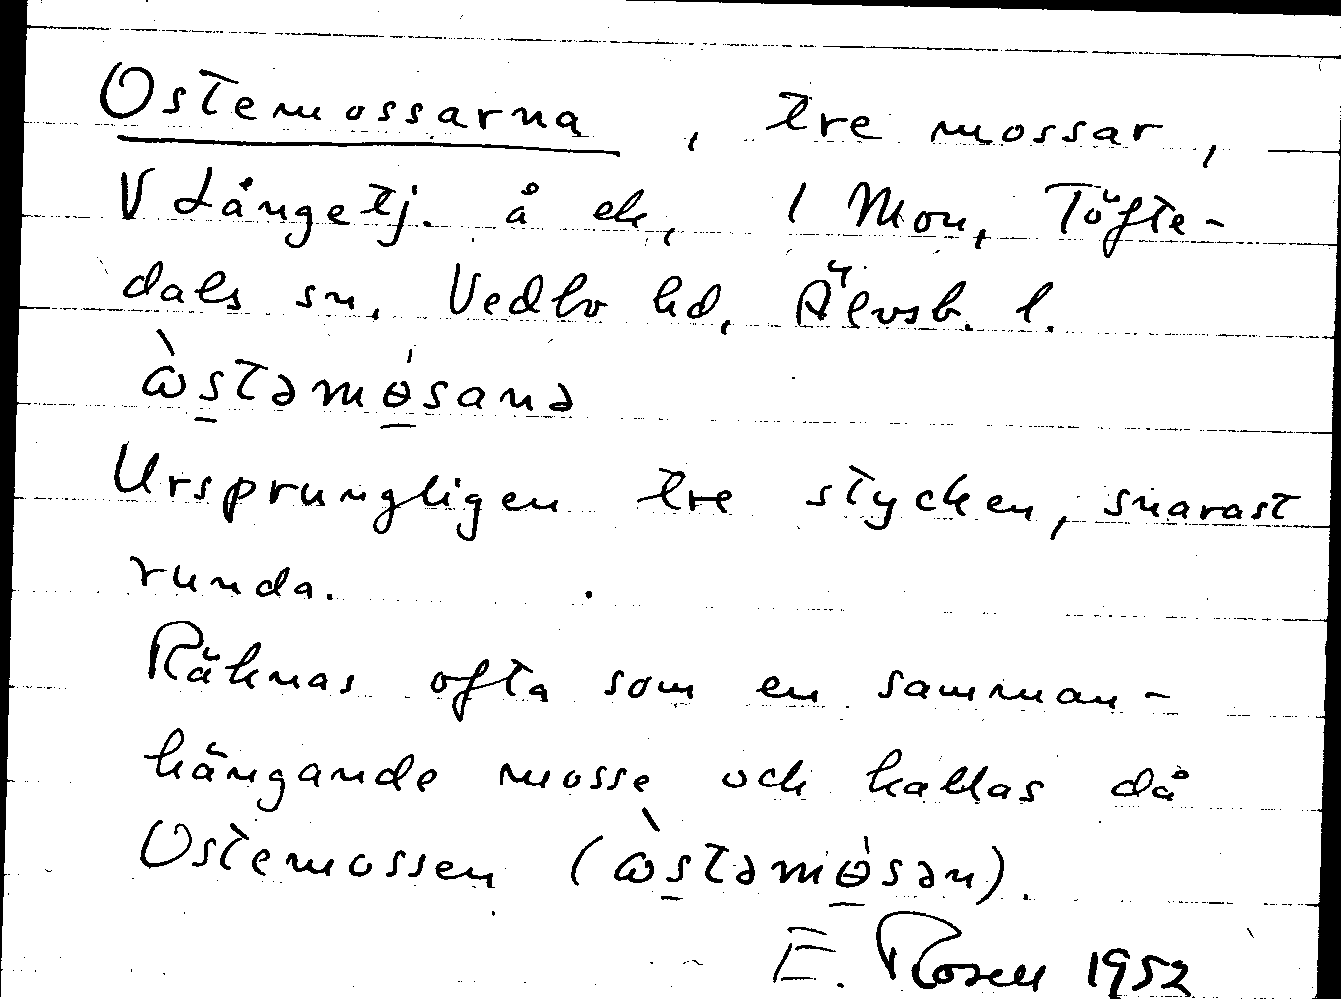 Ostemossarna, tre mossar,
V Långetj. å ek, 1 Mon, Töfte-
dals sn, Vedbo hd, Älvsb. l.
ὼstəmɵ́sanə
Ursprungligen tre stycken, snarast
runda.
Räknas ofta som en samman-
hängande mosse och kallas då
Ostemossen (ὼstəmɵ́sən).
E. Rosell 1952